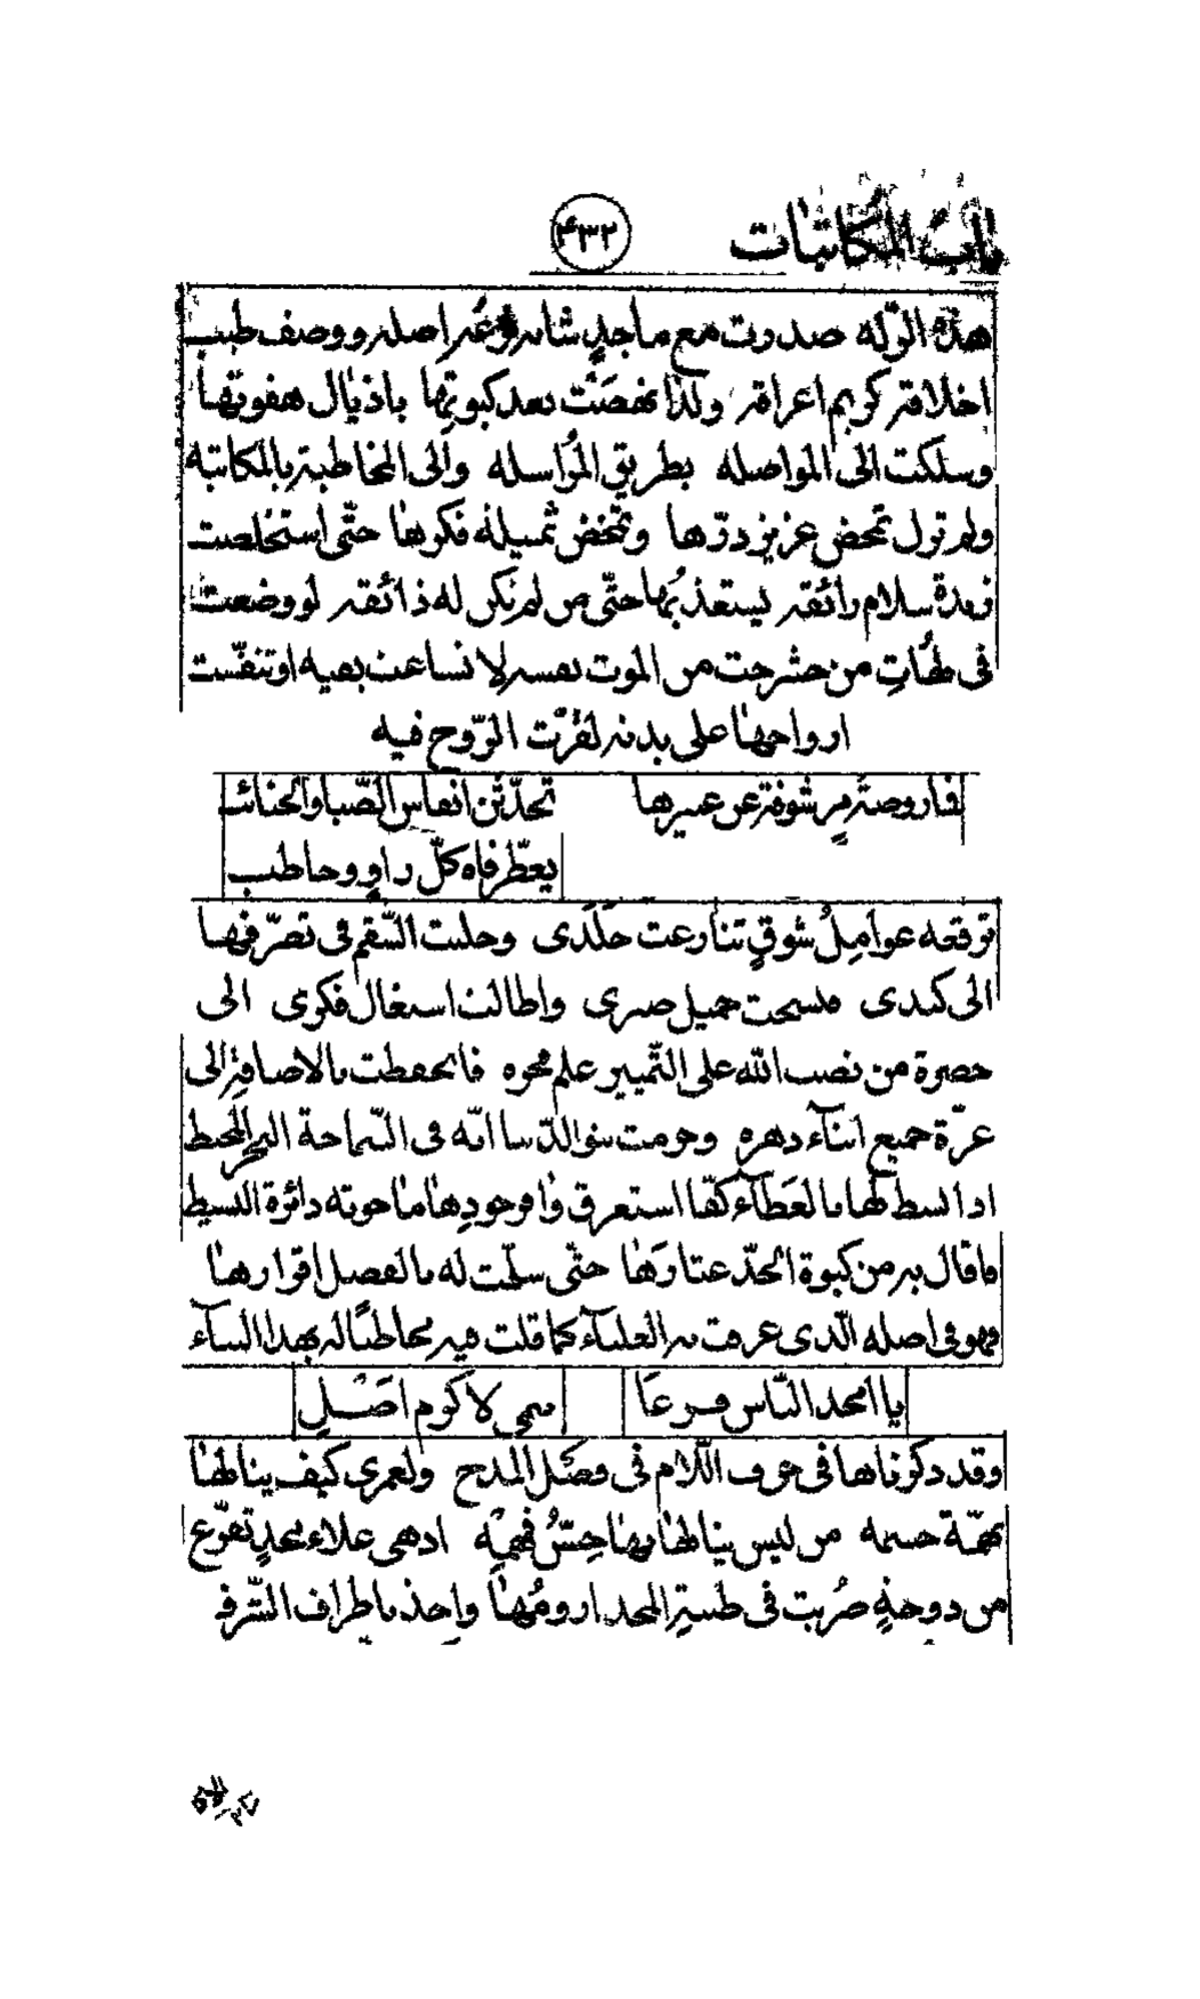 باب المكاتبات
۴۳۲
هذه الزله صدرت مع ماجد شانه وعز اصله ووصف طيب
اخلاقه كريم اعراقه ولذا نهضت بعد كبوتها باذيال هفوتها
وسلكت الى المواصله بطريق المراسله والى المخاطبة بالمكاتبه
ولم تزل تمحض عزيز درّها وتمخض ثميلة فكرها حتّى استخلصت
زبدة سلام رائقه يستعذبها حتّى من لم تكن له ذائقه لو وضعت
فى لهات من حشرجت من الموت نفسه لانساغت بفيه او تنفّست
ارواحها على بدنه لفرّت الرّوح فيه
فما روضة مرشوفة عن عبيرها تحدّثن انفاس الصّبا والجنائب
يعطّر فاه كلّ راوٍ وخاطب
ترفعه عوامل شوقٍ تنازعت خلدى وجلبت السّقم فى تصرّفها
الى كبدى فنسخت جميل صبرى واطالت اشتغال فكرى الى
حضرة من نصب الله على التّمييز علم فخره فانخفضت بالاضافة الى
عزّة جميع ابناء دهره وجزمت بنو الدّنيا انّه فى السّماحة البحر المحيط
اذا بسط لها بالعطاء كفّا استغرق وافر جودها ما حوته دائرة البسيط
ما قال به من كبوة الجدّ عثارها حتّى سلّمت له بالفضل اقرارها
فهو فى اصله الّذى عرفت به العلياء كما قلت فيه مخاطبًا له بهذا الثناء
يا امجد النّاس فرعًا ينمى لاكرم اصل
وقد ذكرناها فى حرف اللّام فى فصل المدح ولعمرى كيف ينالها
بهمّة جسيمه من ليس ينالها بها حسّ فهمه اذ هى علاء مجدٍ تفرّع
من دوحةٍ ضربت فى طينة المجد ارومتها واخذ باطراف الشّرف